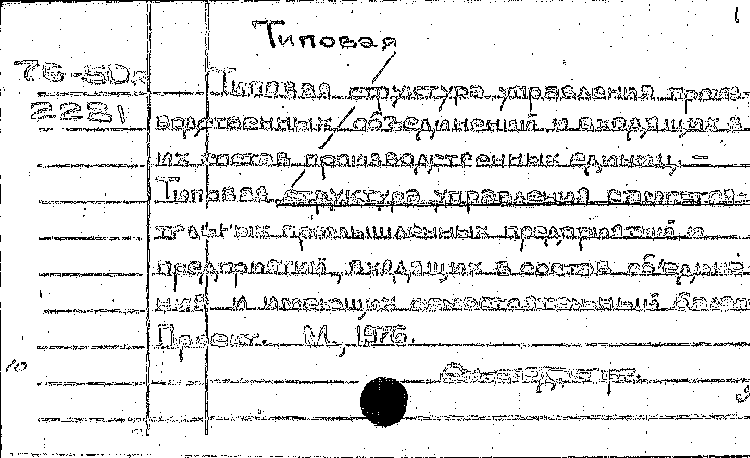 Типовая
76-50
2221
Типовая структура управления произ-
водственных объединений и входящих в
их состав производственных единиц. –
Типовая структура управления самостоя-
тельных промышленных предприятий и
предприятий, входящих в состав объедине-
ний и имеющих самостоятельный баланс
Проект. М., 1976.